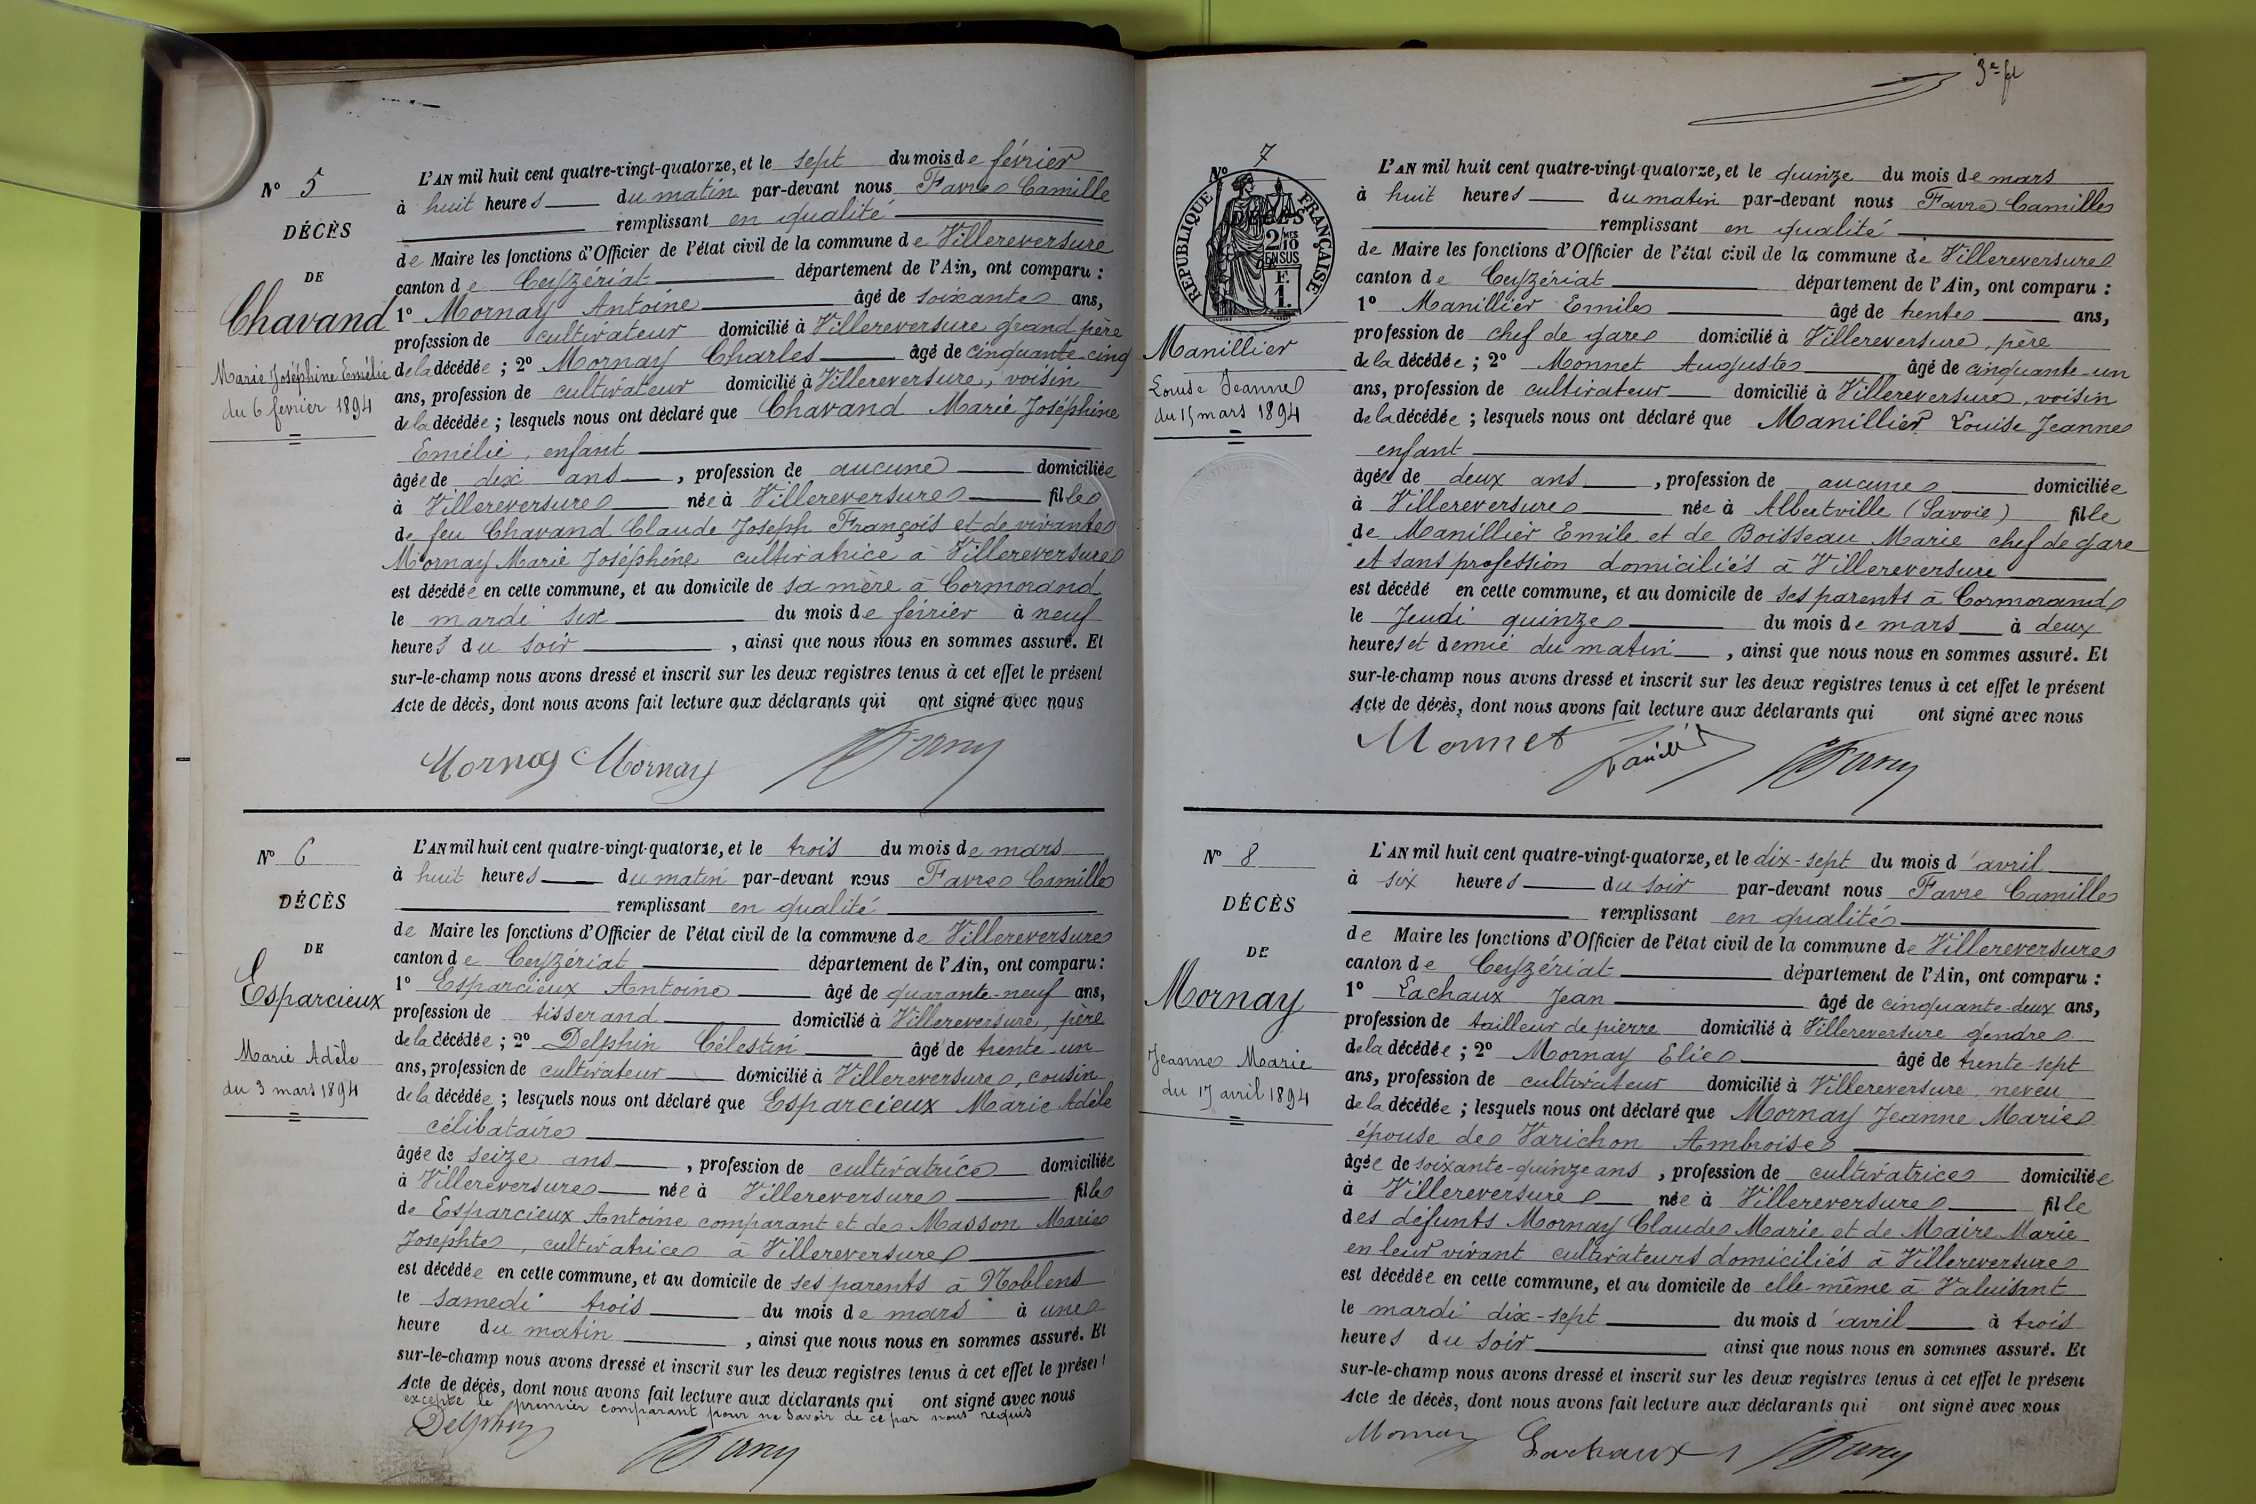 N° 5
DÉCÈS
DE
Chavand
Marie Joséphine Emélie
du 6 fevrier 1894
L'AN mil huit cent quatre-vingt-quatorze, et le sept du mois de février
à huit heures du matin par-devant nous Favre Camille
remplissant en qualité
de Maire les fonctions d'Officier de l'état civil de la commune de Villereversure
canton de Ceyzériat département de l'Ain, ont comparu :
1° Mornay Antoine âgé de soixante ans,
profession de cultivateur domicilié à Villereversure grand père
de la décédée ; 2° Mornay Charles âgé de cinquante-cinq
ans, profession de cultivateur domicilié à Villereversure, voisin
de la décédée ; lesquels nous ont déclaré que Chavand Marie Joséphine
Emélie, enfant
âgée de dix ans, profession de aucune domiciliée
à Villereversure née à Villereversure fille
de feu Chavand Claude Joseph François et de vivante
Mornay Marie Joséphine cultivatrice à Villereversure
est décédée en cette commune, et au domicile de sa mère à Cormorand
le mardi six du mois de février à neuf
heures du soir, ainsi que nous nous en sommes assuré. Et
sur-le-champ nous avons dressé et inscrit sur les deux registres tenus à cet effet le présent
Acte de décès, dont nous avons fait lecture aux déclarants qui ont signé avec nous
Mornay Mornay
N° 6
DÉCÈS
DE
Esparcieux
Marie Adèle
du 3 mars 1894
L'AN mil huit cent quatre-vingt-quatorze, et le trois du mois de mars
à huit heures du matin par-devant nous Favre Camille
remplissant en qualité
de Maire les fonctions d'Officier de l'état civil de la commune de Villereversure
canton de Ceyzériat département de l'Ain, ont comparu :
1° Esparcieux Antoine âgé de quarante-neuf ans,
profession de tisserand domicilié à Villereversure, père
de la décédée ; 2° Delphin Célestin âgé de trente un
ans, profession de cultivateur domicilié à Villereversure, cousin
de la décédée ; lesquels nous ont déclaré que Esparcieux Marie Adèle
célibataire
âgée de seize ans, profession de cultivatrice domiciliée
à Villereversure née à Villereversure fille
de Esparcieux Antoine comparant et de Masson Marie
Josephte, cultivatrice à Villereversure
est décédée en cette commune, et au domicile de ses parents à Noblens
le samedi trois du mois de mars à une
heure du matin, ainsi que nous nous en sommes assuré. Et
sur-le-champ nous avons dressé et inscrit sur les deux registres tenus à cet effet le présent
Acte de décès, dont nous avons fait lecture aux déclarants qui ont signé avec nous
excepté le premier comparant pour ne savoir de ce par nous requis
Delphin
3e fl
N° 7
DÉCÈS
RÉPUBLIQUE FRANÇAISE
2/10 MES
EN SUS
F.
1.
Manillier
Louise Jeanne
du 15 mars 1894
L'AN mil huit cent quatre-vingt-quatorze, et le quinze du mois de mars
à huit heures du matin par-devant nous Favre Camille
remplissant en qualité
de Maire les fonctions d'Officier de l'état civil de la commune de Villereversure
canton de Ceyzériat département de l'Ain, ont comparu :
1° Manillier Emile âgé de trente ans,
profession de chef de gare domicilié à Villereversure, père
de la décédée ; 2° Monnet Auguste âgé de cinquante-un
ans, profession de cultivateur domicilié à Villereversure, voisin
de la décédée ; lesquels nous ont déclaré que Manillier Louise Jeanne
enfant
âgée de deux ans, profession de aucune domiciliée
à Villereversure née à Albertville (Savoie) fille
de Manillier Emile et de Boisseau Marie chef de gare
et sans profession domiciliés à Villereversure
est décédé en cette commune, et au domicile de ses parents à Cormorand
le Jeudi quinze du mois de mars à deux
heures et demie du matin, ainsi que nous nous en sommes assuré. Et
sur-le-champ nous avons dressé et inscrit sur les deux registres tenus à cet effet le présent
Acte de décès, dont nous avons fait lecture aux déclarants qui ont signé avec nous
Monnet
N° 8
DÉCÈS
DE
Mornay
Jeanne Marie
du 17 avril 1894
L'AN mil huit cent quatre-vingt-quatorze, et le dix-sept du mois d'avril
à six heures du soir par-devant nous Favre Camille
remplissant en qualité
de Maire les fonctions d'Officier de l'état civil de la commune de Villereversure
canton de Ceyzériat département de l'Ain, ont comparu :
1° Lachaux Jean âgé de cinquante-deux ans,
profession de tailleur de pierre domicilié à Villereversure gendre
de la décédée ; 2° Mornay Elie âgé de trente sept
ans, profession de cultivateur domicilié à Villereversure neveu
de la décédée ; lesquels nous ont déclaré que Mornay Jeanne Marie
épouse de Varichon Ambroise
âgée de soixante-quinze ans, profession de cultivatrice domiciliée
à Villereversure née à Villereversure fille
des défunts Mornay Claude Marie et de Maire Marie
en leur vivant cultivateurs domiciliés à Villereversure
est décédée en cette commune, et au domicile de elle-même à Valuisant
le mardi dix-sept du mois d'avril à trois
heures du soir ainsi que nous nous en sommes assuré. Et
sur-le-champ nous avons dressé et inscrit sur les deux registres tenus à cet effet le présent
Acte de décès, dont nous avons fait lecture aux déclarants qui ont signé avec nous
Mornay Lachaux